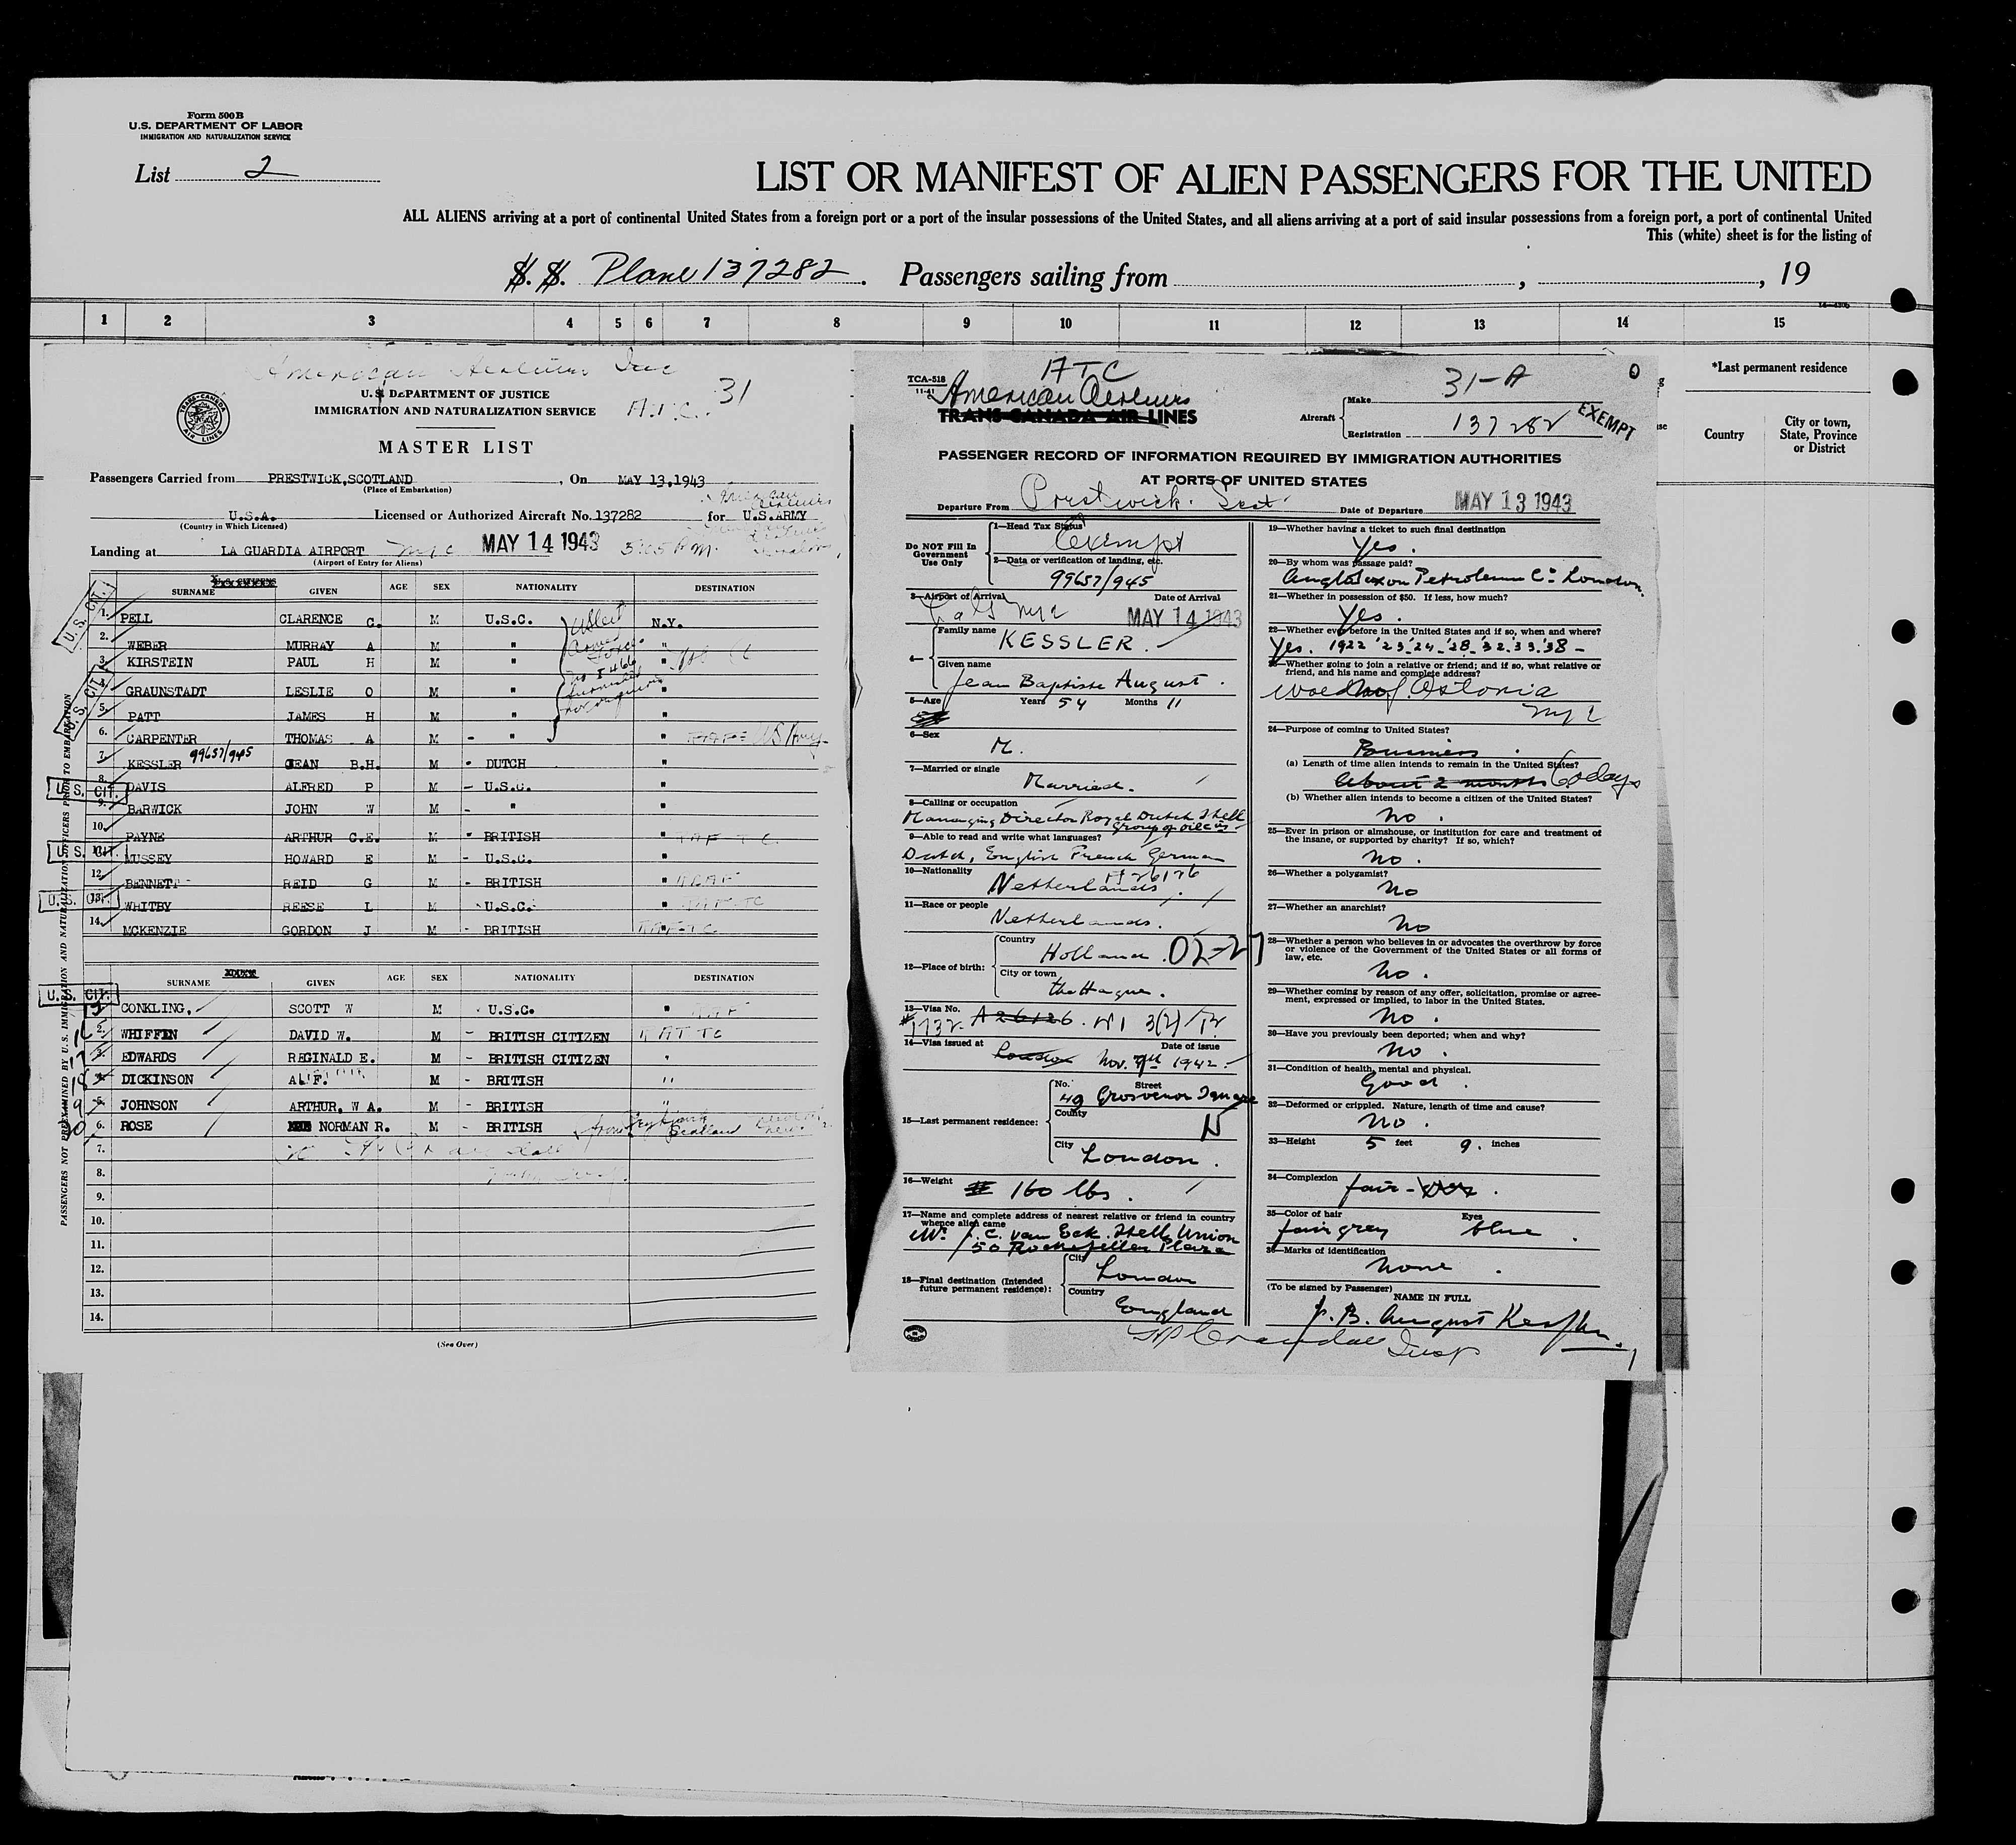 Form 500 B
U.S. DEPARTMENT OF LABOR
IMMIGRATION AND NATURALIZATION SERVICE
List 2
LIST OR MANIFEST OF ALIEN PASSENGERS FOR THE UNITED
ALL ALIENS arriving at a port of continental United States from a foreign port or a port of the insular possessions of the United States, and all aliens arriving at a port of said insular possessions from a foreign port, a port of continental United
This (white) sheet is for the listing of
S. S. Plane 137282. Passengers sailing from , , 19
16—630b
1 2 3 4 5 6 7 8 9 10 11 12 13 14 15
*Last permanent residence
Country
City or town, State, Province or District
American Airlines Inc
U.S. DEPARTMENT OF JUSTICE
IMMIGRATION AND NATURALIZATION SERVICE
A.T.C. 31
TRANS-CANADA AIR LINES
MASTER LIST
Passengers Carried from PRESTWICK,SCOTLAND , On MAY 13,1943
(Place of Embarkation)
U.S.A. Licensed or Authorized Aircraft No. 137282 for U.S.ARMY
(Country in Which Licensed)
Landing at LA GUARDIA AIRPORT NYC MAY 14 1943
(Airport of Entry for Aliens)
U.S. CITIZENS
SURNAME GIVEN AGE SEX NATIONALITY DESTINATION
1. PELL CLARENCE C. M U.S.C. N.Y.
2. WEBER MURRAY A M " "
3. KIRSTEIN PAUL H M "
4. GRAUNSTADT LESLIE O M " "
5. PATT JAMES H M " "
6. CARPENTER THOMAS A M - " "
7. KESSLER 99657/945 JEAN B.H. M DUTCH "
8. DAVIS ALFRED P M - U.S.C. "
9. BARWICK JOHN W M - " "
10. PAYNE ARTHUR C.E. M BRITISH "
MUSSEY HOWARD E M - U.S.C. "
12. BENNETT REID G M - BRITISH "
13. WHITBY REESE L M U.S.C. "
14. MCKENZIE GORDON J M - BRITISH "
U. S. CIT.
U. S. CIT.
U. S. CIT.
U. S. CIT.
U. S. CIT.
U. S. CIT.
PASSENGERS NOT PREEXAMINED BY U.S. IMMIGRATION AND NATURALIZATION OFFICERS PRIOR TO EMBARKATION
SURNAME GIVEN AGE SEX NATIONALITY DESTINATION
15 CONKLING, SCOTT W M U.S.C. "
16 2. WHIFFEN DAVID W. M - BRITISH CITIZEN
17 3. EDWARDS REGINALD E. M - BRITISH CITIZEN "
18 4. DICKINSON A. F. M - BRITISH "
5. JOHNSON ARTHUR. W A. M - BRITISH "
6. ROSE NORMAN R. M - BRITISH
7.
8.
9.
10.
11.
12.
13.
14.
(See Over)
TCA-518
11-41
ATC
American Airlines
TRANS-CANADA AIR LINES
31-A
0
Aircraft
Make
Registration 137282
EXEMPT
PASSENGER RECORD OF INFORMATION REQUIRED BY IMMIGRATION AUTHORITIES
AT PORTS OF UNITED STATES
Departure From Prestwick. Scot Date of Departure MAY 13 1943
Do NOT Fill In Government Use Only
1—Head Tax Status
Exempt
2—Data or verification of landing, etc.
99657/945
3—Airport of Arrival Date of Arrival
MAY 14 1943
4—
Family name
KESSLER.
Given name
Jean Baptiste August.
5—Age Years 54 Months 11
6—Sex
M.
7—Married or single
Married.
8—Calling or occupation
Managing Director Royal Dutch Shell
Group of oil cos
9—Able to read and write what languages?
Dutch, English French German
10—Nationality
Netherlands.
11—Race or people
Netherlands.
12—Place of birth:
Country
Holland. 02-27
City or town
the Hague.
13—Visa No.
A 26126.
14—Visa issued at Date of issue
London Nov. 1942.
15—Last permanent residence:
No. Street
49 Grosvenor Square
County
City
London.
16—Weight
160 lbs.
17—Name and complete address of nearest relative or friend in country
whence alien came
Mr J. C. van Eck. Shell Union
50 Rockefeller Plaza
18—Final destination (Intended future permanent residence):
City
London
Country
England
19—Whether having a ticket to such final destination
Yes.
20—By whom was passage paid?
Anglo Saxon Petroleum Co London.
21—Whether in possession of $50. If less, how much?
Yes.
22—Whether ever before in the United States and if so, when and where?
Yes. 1922 '23.'24_'28_'32.'33.'38 -
23—Whether going to join a relative or friend; and if so, what relative or
friend, and his name and complete address?
Waldorf. Astoria
NYC
24—Purpose of coming to United States?
Business.
(a) Length of time alien intends to remain in the United States?
About 2 months 60 days
(b) Whether alien intends to become a citizen of the United States?
No.
25—Ever in prison or almshouse, or institution for care and treatment of
the insane, or supported by charity? If so, which?
No.
26—Whether a polygamist?
No
27—Whether an anarchist?
No
28—Whether a person who believes in or advocates the overthrow by force
or violence of the Government of the United States or all forms of
law, etc.
No.
29—Whether coming by reason of any offer, solicitation, promise or agree-
ment, expressed or implied, to labor in the United States.
No.
30—Have you previously been deported; when and why?
No.
31—Condition of health, mental and physical.
Good.
32—Deformed or crippled. Nature, length of time and cause?
No.
33—Height 5 feet 9. inches
34—Complexion
fair
35—Color of hair Eyes
fair grey blue.
36—Marks of identification
None.
(To be signed by Passenger)
NAME IN FULL
J. B. August Kessler.